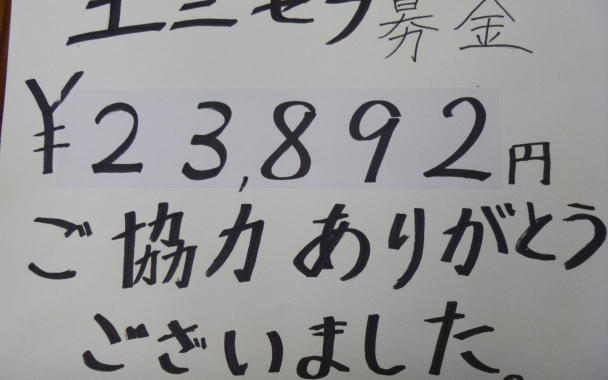 ユニセフ募金
¥23,892円
ご協力ありがとう
ございました。